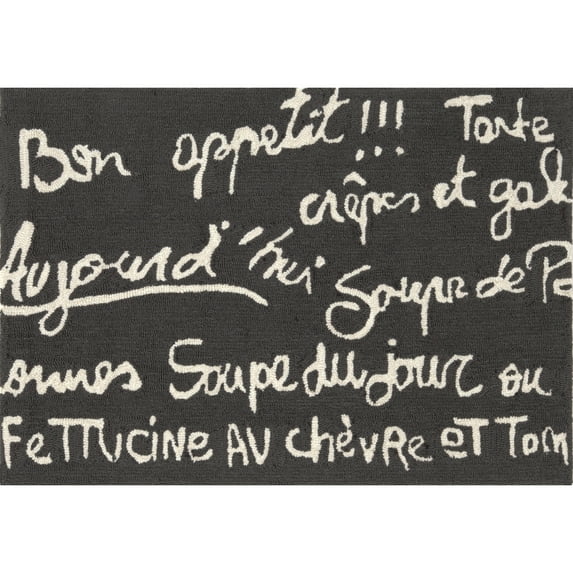 Bon appetit!!! Tarte
crêpes et gal
Aujourd'hui Soupe de Po
onnes Soupe du jour ou
FeTTUCINE AU chèVRe eT Tom